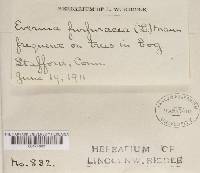 HERBARIUM OF L. W. RIDDLE
Evernia furfuracea (L.) Mann
frequent on trees in bog
Stafford, Conn.
June 19, 1911
No. 832.
HERBARIUM OF
LINCOLN W. RIDDLE